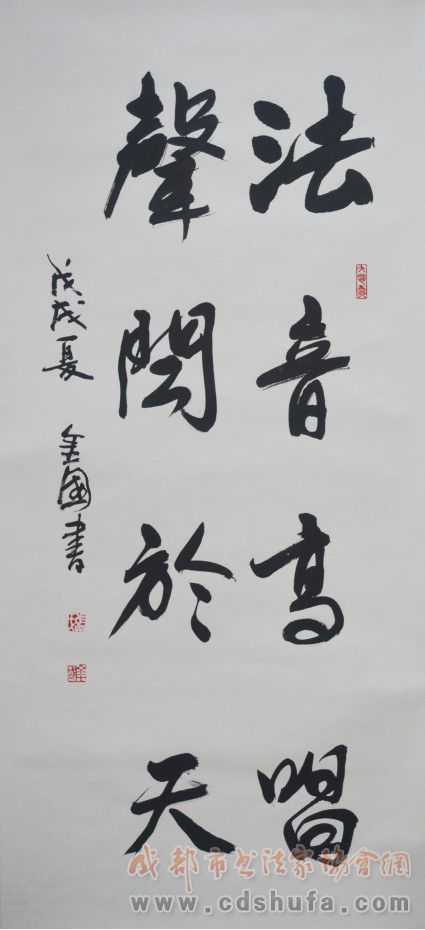 法音高唱
聲聞於天
戊戌夏 金國書
成都市书法家协會網
www.cdshufa.com